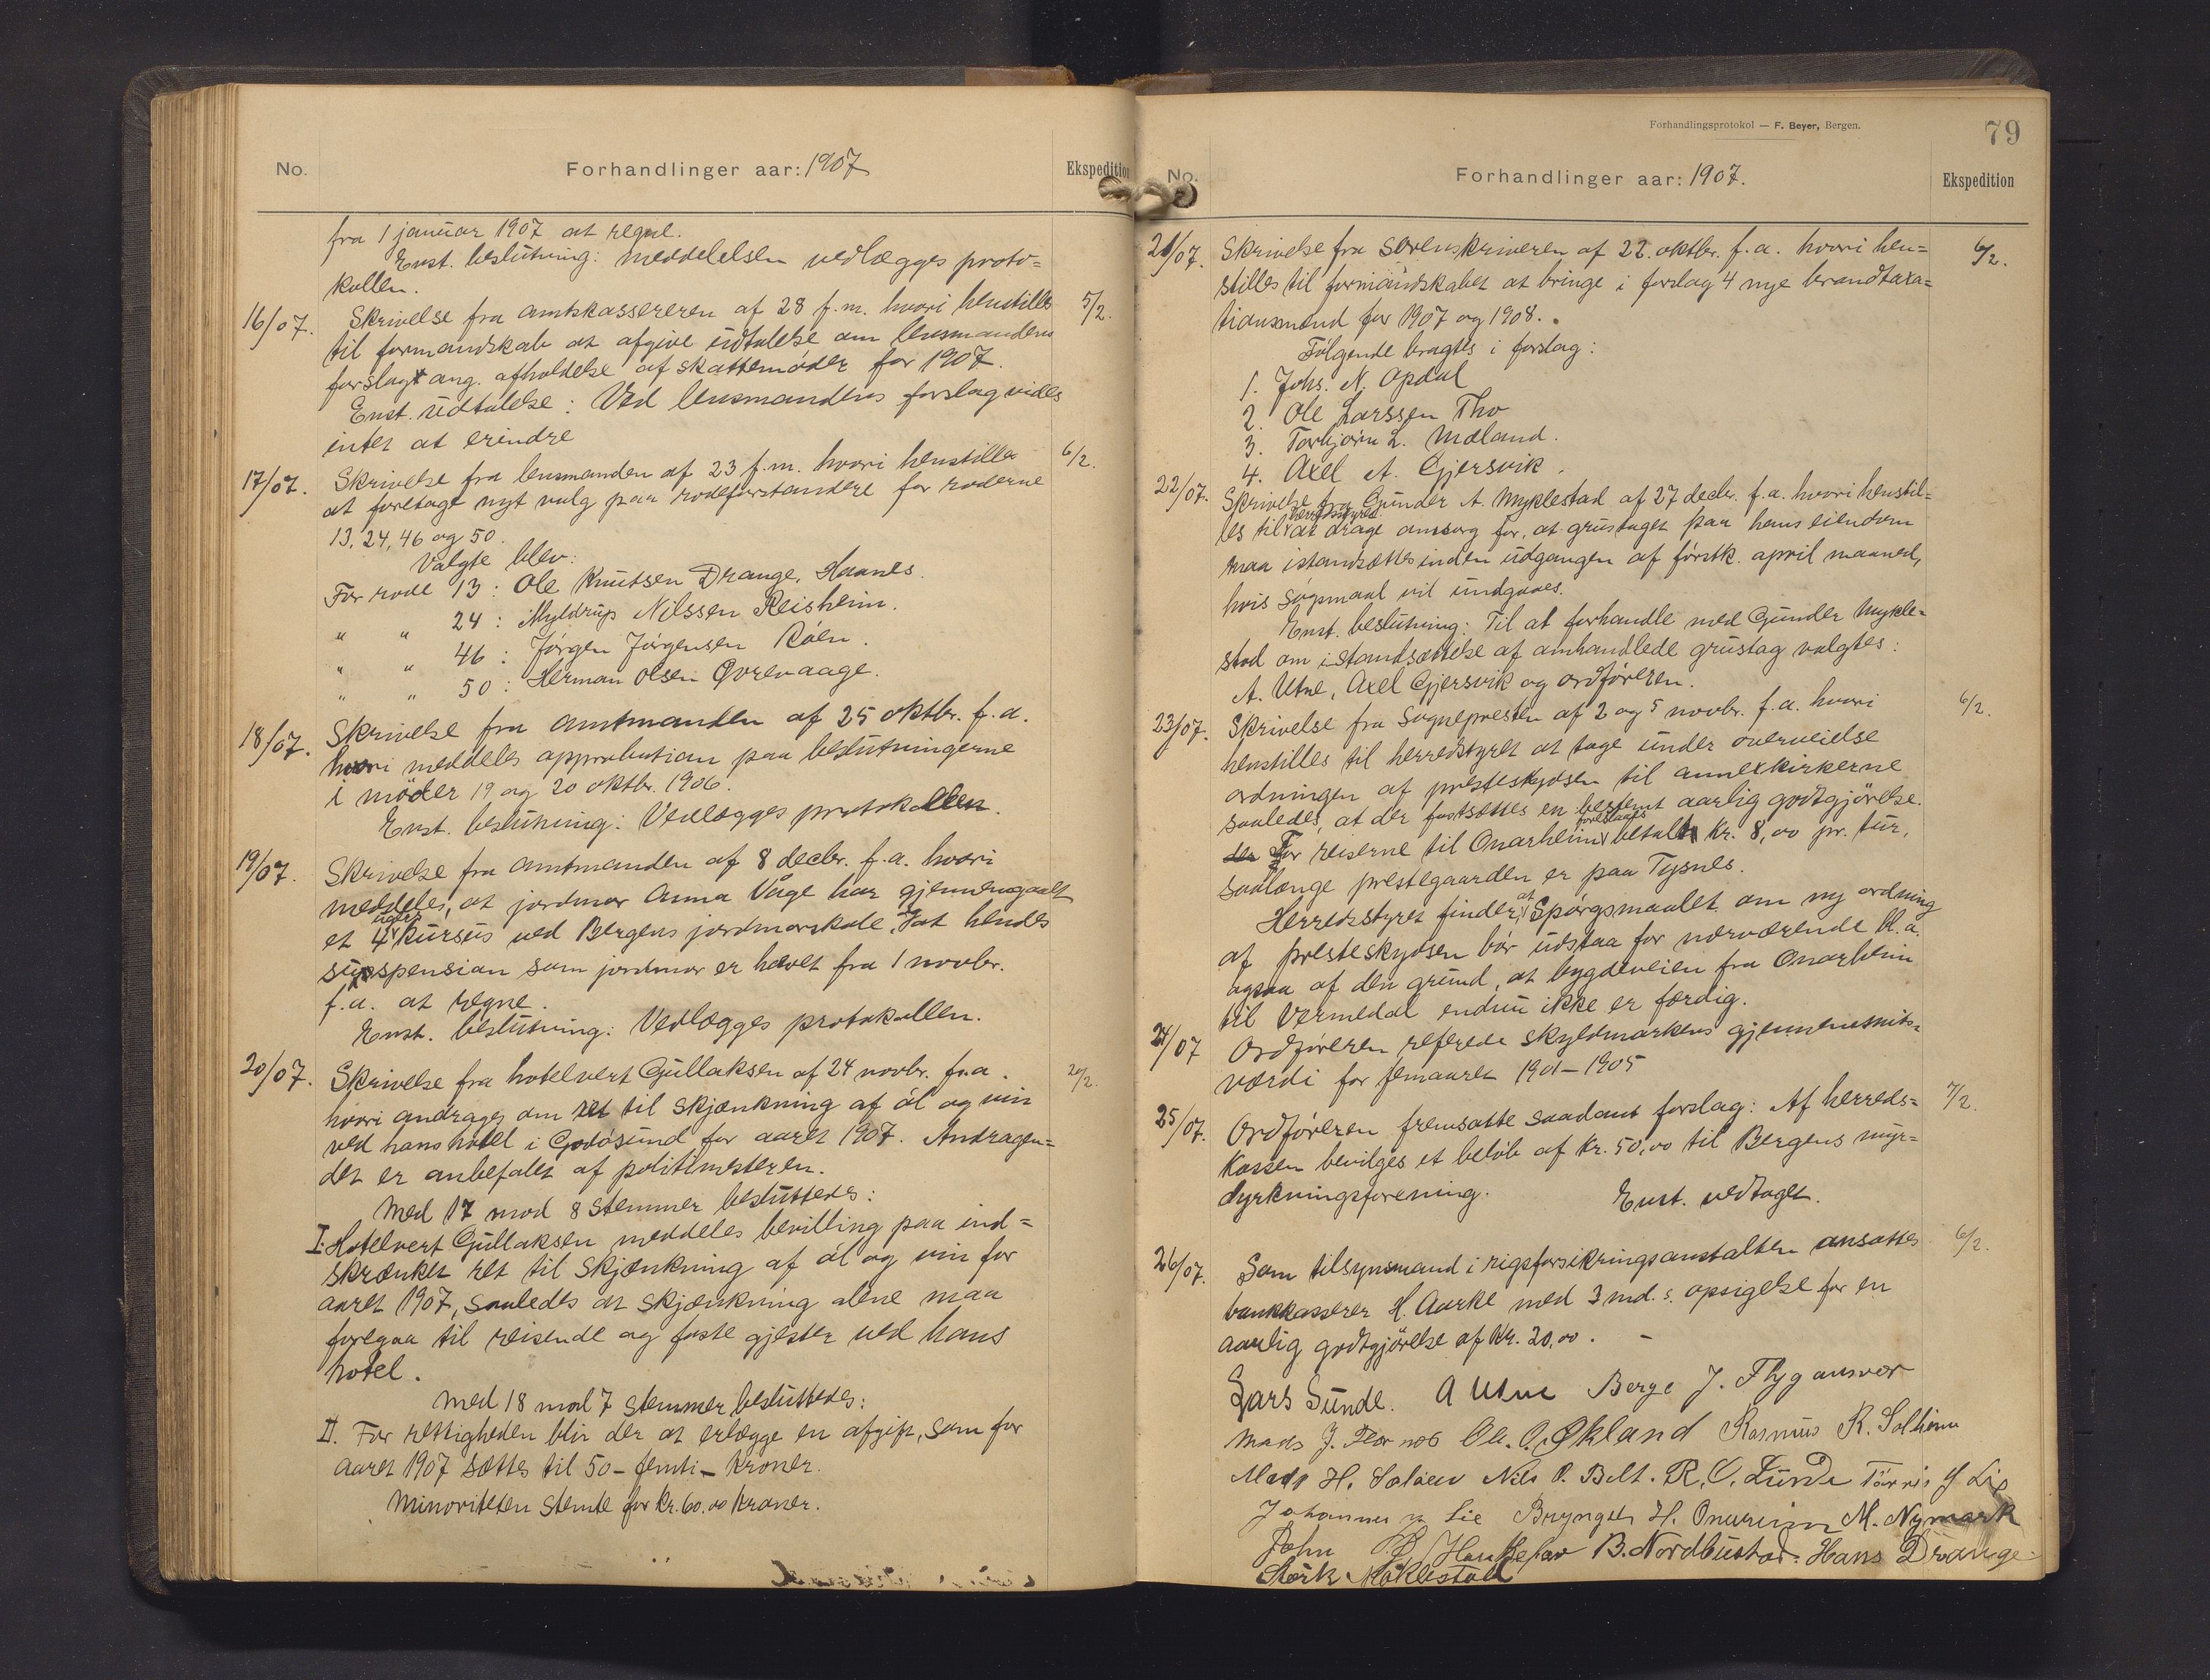 No. Forhandlinger aar: 1907 Ekspedition
fra 1 januar 1907 at regne.
Enst. beslutning: Meddelelsen vedlægges proto=
kollen.
16/07. Skrivelse fra amtskassereren af 28 f.m. hvori henstilles 5/2.
til formandskab at afgive udtalelse om lensmandens
forslag ang. afholdelse af skattemöder for 1907.
Enst. udtalelse: Ved lensmandens forslag vides
intet at erindre
17/07. Skrivelse fra lensmanden af 23 f.m. hvori henstilles 6/2.
at foretage nyt valg paa rodeforstandere for roderne
13, 24, 46 og 50.
Valgte blev:
For rode 13: Ole Knutsen Drange, Haanes.
" " 24: Myldrup Nilssen Reisheim.
" " 46: Jörgen Jörgensen Röen.
" " 50: Herman Olsen Övrevaage.
18/07. Skrivelse fra amtmanden af 25 oktbr. f.a.
hvori meddeles approbation paa beslutningerne
i möder 19 og 20 oktbr. 1906.
Enst. beslutning: Vedlægges protokollen.
19/07. Skrivelse fra amtmanden af 8 decbr. f.a. hvori
meddeles, at jordmor Anna Våge har gjennemgaalt
et 4 ugers kursus ved Bergens jordmorskole, at hendes
suspension som jordmor er hævet fra 1 novbr.
f.a. at regne.
Enst. beslutning: Vedlægges protokollen.
20/07. Skrivelse fra hotelvert Gullaksen af 24 novbr. f.a. 20/2.
hvori andrages om ret til skjænkning af öl og vin
ved hans hotel i Godösund for aaret 1907. Andragen=
det er anbefalet af politimesteren.
Med 17 mod 8 stemmer besluttedes:
I. Hotelvert Gullaksen meddeles bevilling paa ind=
skrænket ret til skjænkning af öl og vin for
aaret 1907, saaledes at skjænkning alene maa
foregaa til reisende og faste gjester ved hans
hotel.
Med 18 mod 7 stemmer besluttedes:
II. For rettigheden blir der at erlægge en afgift, som for
aaret 1907 sættes til 50 - femti - kroner.
Minoriteten stemte for kr. 60.00 kroner.
Forhandlingsprotokol — F. Beyer, Bergen. 79
No. Forhandlinger aar: 1907. Ekspedition
21/07. Skrivelse fra sorenskriveren af 22. oktbr. f.a. hvori hen= 6/2.
stilles til formandskabet at bringe i forslag 4 nye brandtaxa=
tionsmænd for 1907 og 1908.
Fölgende bragtes i forslag:
1. Johs. N. Opdal
2. Ole Larssen Tho
3. Torbjörn L. Mæland.
4. Axel A. Gjersvik.
22/07. Skrivelse fra Gunder A. Myklestad af 27 decbr. f.a. hvori henstil=
les til herredsstyret at drage omsorg for, at grustaget paa hans eiendom
maa istandsættes inden udgangen af förstk. april maaned,
hvis sögsmaal vil undgaaes.
Enst. beslutning: Til at forhandle med Gunder Mykle=
stad om istandsættelse af omhandlede grustag valgtes:
A. Utne, Axel Gjersvik og ordföreren.
23/07. Skrivelse fra sognepresten af 2 og 5 novbr. f.a. hvori 6/2.
henstilles til herredsstyret at tage under overveielse
ordningen af presteskydsen til annexkirkerne
saaledes, at der fastsættes en bestemt aarlig godtgjörelse.
For reiserne til Onarheim foreslaaes betalt kr. 8,00 pr. tur,
saalænge prestegaarden er paa Tysnes.
Herredsstyret finder, at spörgsmaalet om ny ordning
af presteskydsen bör udstaa for nærværende bl.a.
ogsaa af den grund, at bygdeveien fra Onarheim
til Vermedal endnu ikke er færdig.
24/07 Ordföreren referede skyldmarkens gjennemsnits=
værdi for femaaret 1901-1905
25/07. Ordföreren fremsatte saadant forslag: Af herreds= 7/2.
kassen bevilges et belöb af kr. 50,00 til Bergens myr=
dyrkningsforening. Enst. vedtaget.
26/07. Som tilsynsmand i rigsforsikringsanstalten ansattes 6/2.
bankkasserer H. Aarke med 3 md.s. opsigelse for en
aarlig godtgjörelse af kr. 20,00.
Lars Sunde. A Utne Berge J. Flygansvær
Mads J. Ole. O. Økland Rasmus K. Solheim
Mads H. Nils O. Belt. R. O. Lunde Törris J Lie
Johannes Lie Bryngel H. Onarheim M. Nymark
John B. Nordbustad. Hans Drange
Störk Möklestad